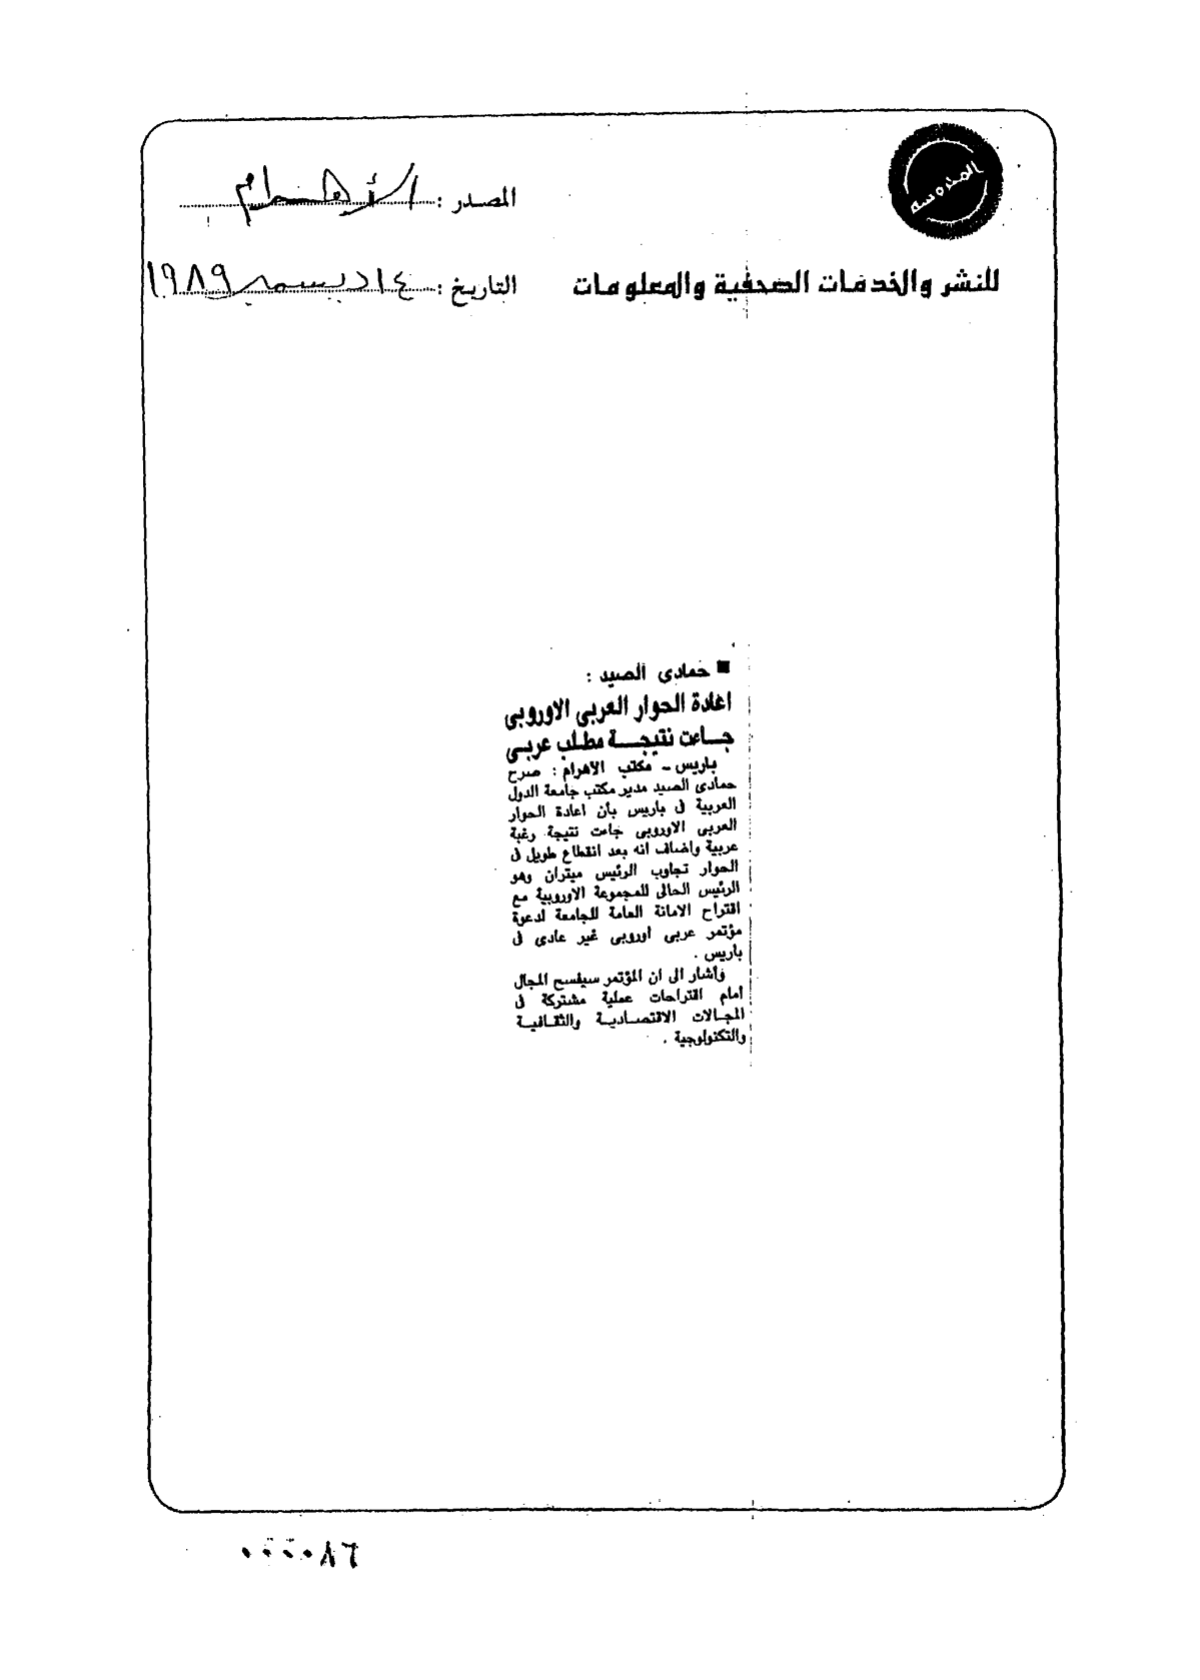 المحروسة
المصدر : الأهرام
للنشر والخدمات الصحفية والمعلومات
التاريخ : ١٤ ديسمبر ١٩٨٩
■ حمادى الصيد :
اعادة الحوار العربى الاوروبى
جـاءت نتيجـة مطلب عربى
باريس - مكتب الأهرام : صرح
حمادى الصيد مدير مكتب جامعة الدول
العربية فى باريس بأن اعادة الحوار
العربى الاوروبى جاءت نتيجة رغبة
عربية واضاف انه بعد انقطاع طويل فى
الحوار تجاوب الرئيس ميتران وهو
الرئيس الحالى للمجموعة الاوروبية مع
اقتراح الامانة العامة للجامعة لدعوة
مؤتمر عربى اوروبى غير عادى فى
باريس .
وأشار الى ان المؤتمر سيفسح المجال
أمام اقتراحات عملية مشتركة فى
المجـالات الاقتصـاديـة والثقـافيـة
والتكنولوجية .
٠٠٠٠٨٦